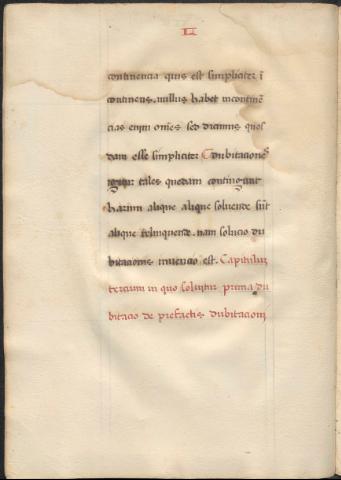 LI
continencia quis est simpliciter ĩ
continens. nullus habet incontinē
cias enim om̄es sed dicimus quos
dam esse simpliciter Dubitacionēs
igitur tales quedam contingunt
harum alique alique soluende sūt
alique relinquende. nam solucio du
bitacionis inuencio est. Capitulum
tercium in quo soluitur prima du
bitacio de prefactis dubitacioni